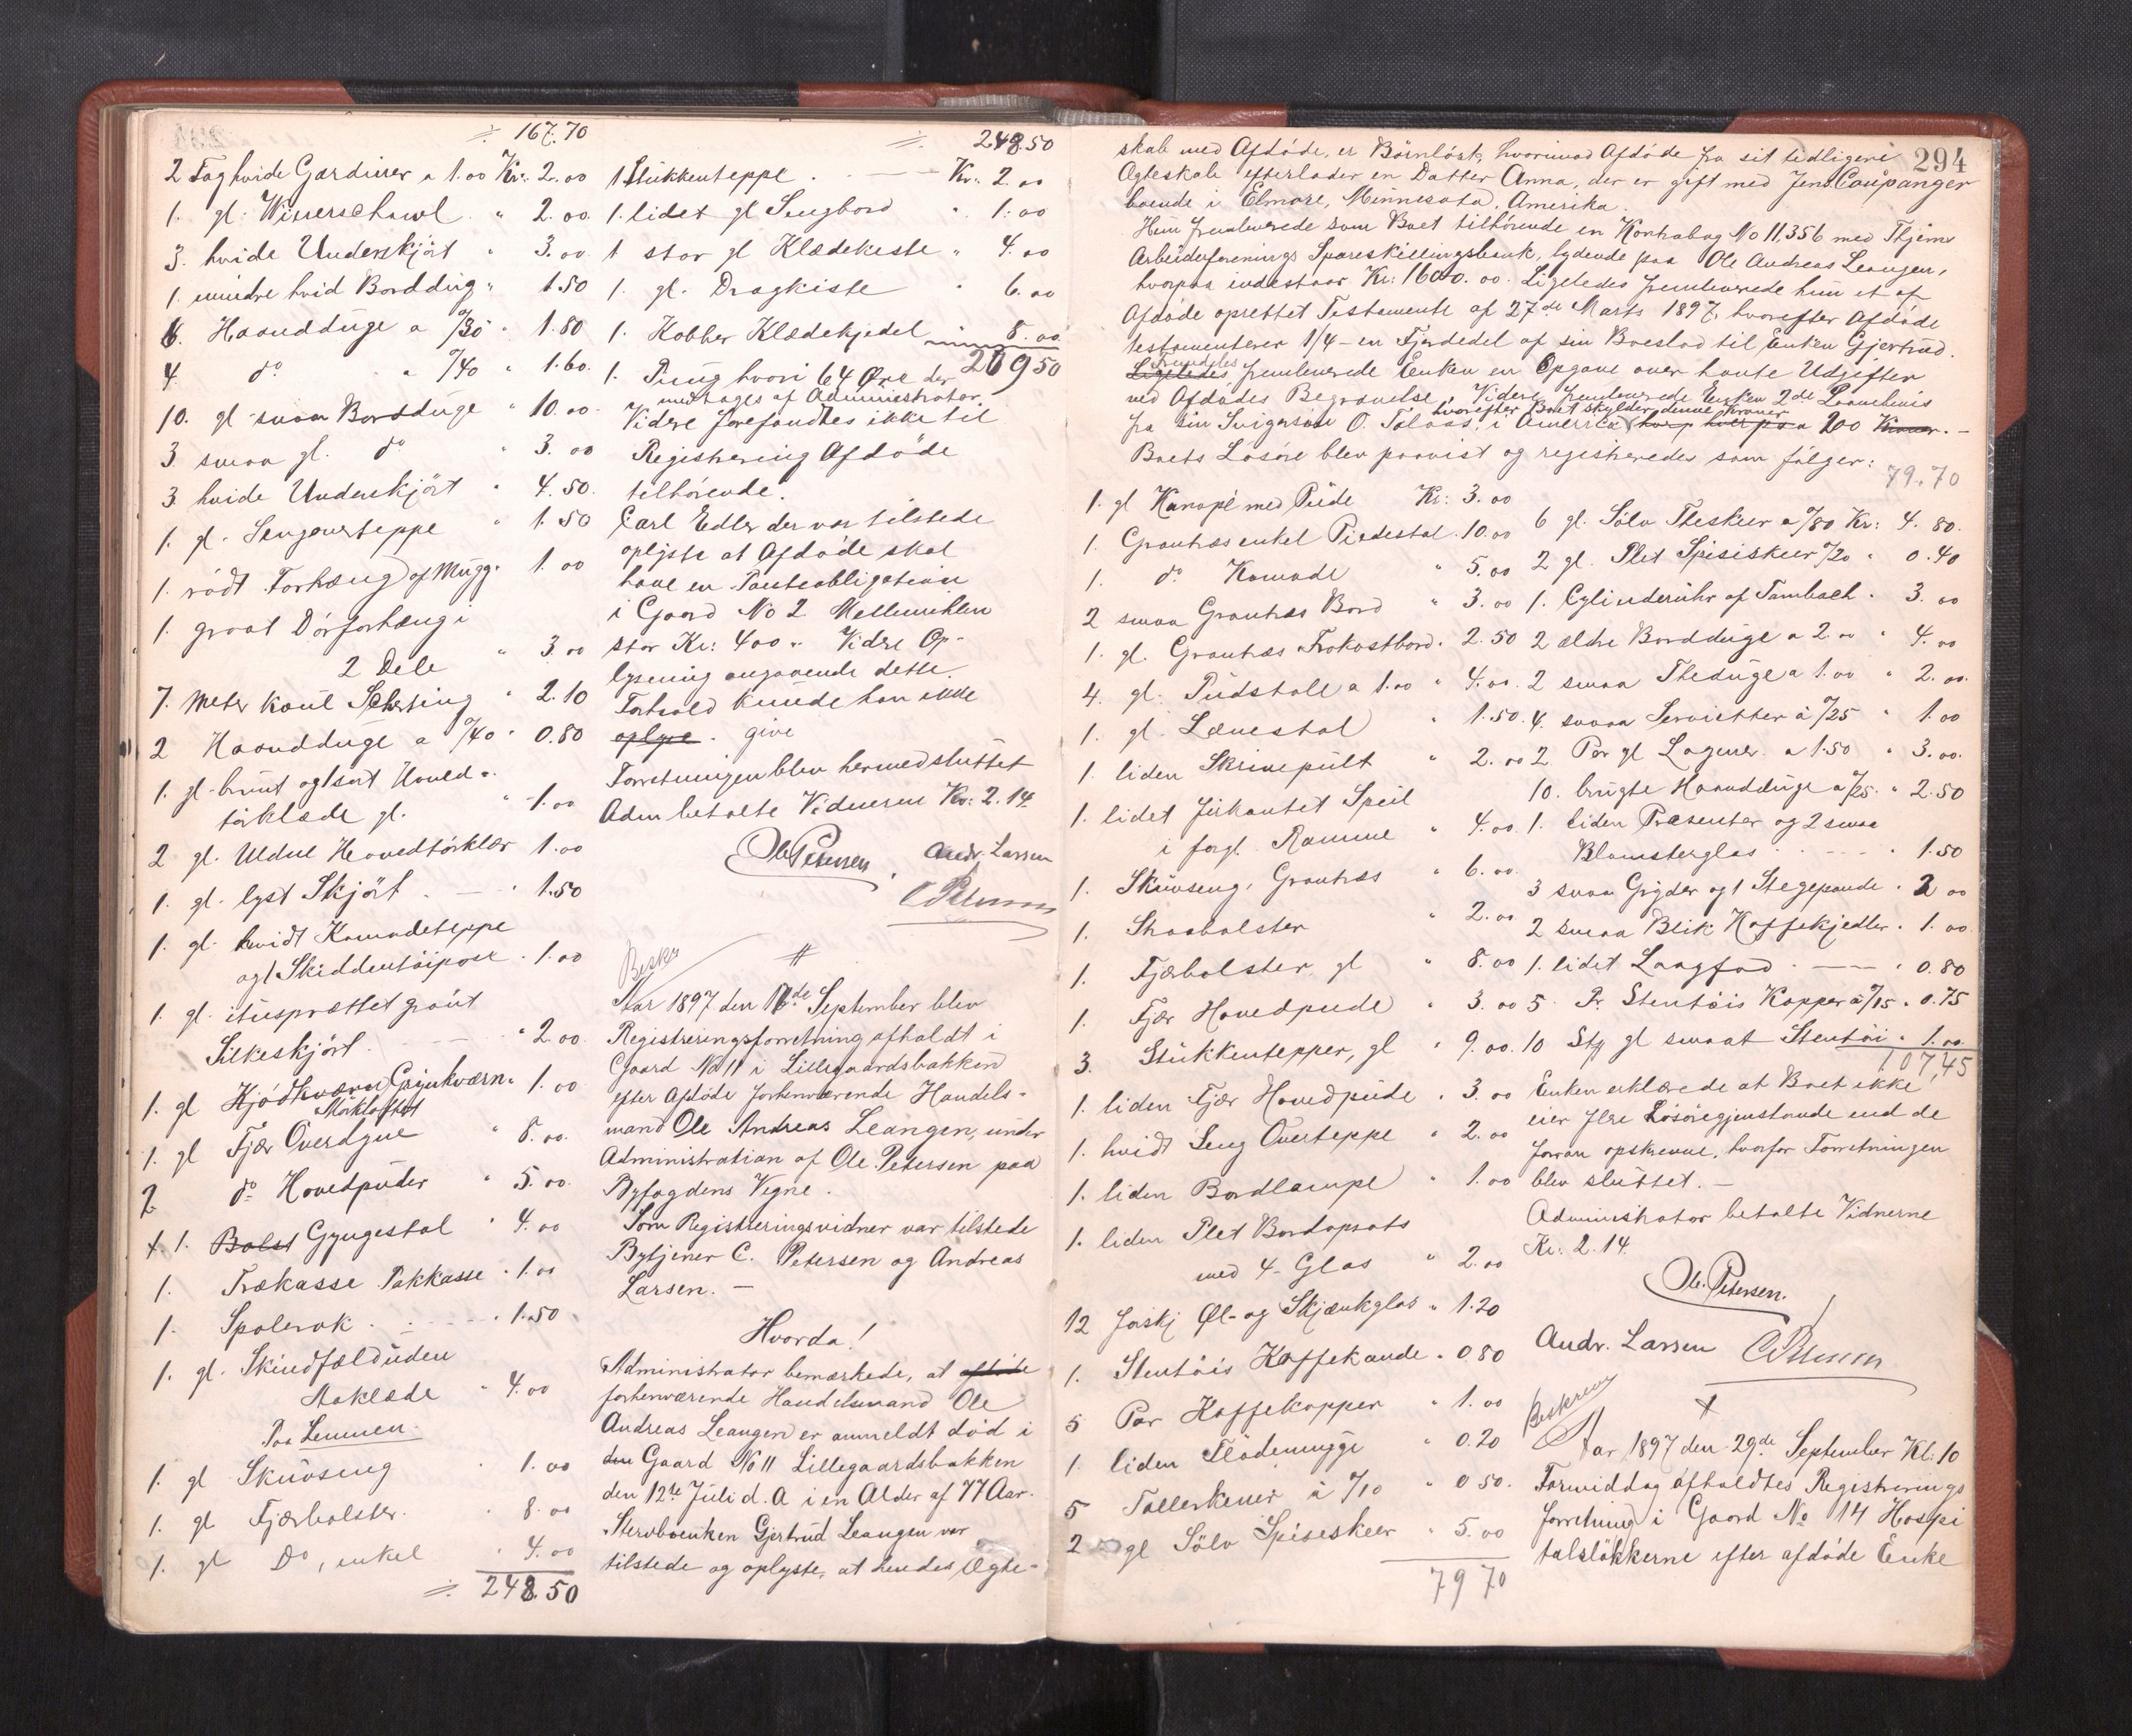 ÷ 167.70
2 Fag hvide Gardiner a 1.00 Kr. 2.00
1. gl. Winterschawl " 2.00.
3. hvide Underskjört " 3.00
1. mindre hvid Borddug " 1.50
6. Haandduge a 0/30 " 1.80
4 do a 0/40 " 1.60.
10. gl smaa Bordduge " 10.00
3. smaa gl. do " 3.00
3. hvide Underskjört " 4.50.
1. gl. Sengeverteppe " 1.50
1. rödt Forhæng af Mugg. 1.00
1. graat Dörforhæng i
2 Dele " 3.00
7. Meter koul Schirting " 2.10
2 Haandduge a 0/40 " 0.80
1. gl. brunt og 1 sort Hoved-
törklæde gl. " 1.00
2 gl. Uldne Hovedtörklær 1.00
1. gl. lyst Skjört . — " 1.50
1. gl. hvidt Komodeteppe
og 1 Skiddentöipose . 1.00
1. gl. itusprættet graat
Silkeskjört. " 2.00.
1. gl Kjödkværn Grynkværn " 1.00
Mörkloftet
1. gl Fjær Overdyne " 8.00.
2 do Hovedpuder " 5.00.
+ 1. Bolst Gyngestol " 4.00
1. Trækasse Pakkasse " 1.00
1. Spolerok . " 1.50
1. gl. Skindfæld uden
Aaklæde " 4.00
Paa Lemmen.
1. gl Skuvseng " 1.00
1. gl Fjærbolster. " 8.00
1. gl Do, enkel " 4.00
÷ 248.50
÷ 248.50
1 Stukkenteppe . — Kr. 2.00
1. lidet gl Sengbord " 1.00
1 stor gl Klædekiste " 4.00
1. gl. Dragkiste " 6.00
1. Kobber Klædekjedel " 8.00
269 50
1. Pung hvori 64 Øre der
medtages af Administrator.
Videre forefandtes ikke til
Registrering Afdöde
tilhörende.
Carl Edler der var tilstede
oplyste at Afdöde skal
have en Panteobligation
i Gaard No 2 Mellemilen
stor Kr: 400 " Vidre Op-
lysning angaaende dette
Forhold kunde han ikke
oplyse. give
Forretningen blev hermed sluttet
Adm betalte Vidnerne Kr: 2.14.
Ole Petersen, Andr. Larsen
C Petersen
Beskr
#
Aar 1897 den 16de September blev
Registreringsforretning afholdt i
Gaard No 11 i Lillegaardsbakken
efter Afdöde forhenværende Handels-
mand Ole Andreas Leangen, under
Administration af Ole Petersen paa
Byfogdens Vegne.
Som Registreringsvidner var tilstede
Bytjener C. Petersen og Andreas
Larsen. —
Hvorda!
Administrator bemærkede, at afdöde
forhenværende Handelsmand Ole
Andreas Leangen er anmeldt död i
den Gaard No 11 Lillegaardsbakken
den 12te Juli d. A i en Alder af 77 Aar.
Stervboenken Gjertrud Leangen var
tilstede og oplyste, at hendes Ægte-
294
skab med Afdöde, er Börnlöst, hvorimod Afdöde fra sit tidligere
Ægteskab efterlader en Datter Anna, der er gift med Jens Caupanger
boende i Elmore, Minnesota, Amerika.
Hun fremleverede som Boet tilhörende en Kontrabog No 11,356 med Thjems
Arbeiderforenings Spareskillingsbank, lydende paa Ole Andreas Leangen,
hvorpaa indestaar Kr: 1600.00. Ligeledes fremleverede hun et af
Afdöde oprettet Testamente af 27de Marts 1897, hvorefter Afdöde
testamenterer 1/4 – en Fjerdedel af sin Boeslod til Enken Gjertrud.
Fremdeles
Ligeledes fremleverede Enken en Opgave over havte Udgifter
ved Afdödes Begravelse. Videre fremleverede Enken 2de Laanebevis
hvorefter Boet skylder denne Kroner
fra sin Svigersön O. Tolaas, i Amerika 200 Kroner. –
Boets Lösöre blev paavist og registreredes som fölger:
1. gl Kanapé med Pude Kr: 3.00
1. Grantræs enkel Piedestal . 10.00
1. do Komode " 5.00
2 smaa Grantræs Bord " 3.00
1. gl. Grantræs Frokostbord. 2.50
4. gl. Pudstole a 1.00 " 4.00.
1. gl. Lænestol " 1.50.
1. liden Skrivepult " 2.00
1. lidet firkantet Speil
i forgl. Ramme " 4.00.
1. Skuvseng, Grantræs " 6.00.
1. Straabolster " 2.00
1. Fjærbolster gl " 8.00
1. Fjær Hovedpude " 3.00
3. Stukkentepper, gl " 9.00.
1. liden Fjær Hovedpude . 3.00
1. hvidt Seng Overteppe " 2.00
1. liden Bordlampe " 1.00
1. liden Plet Bordopsats
med 4 Glas " 2.00
12 forskj Øl- og Skjænkglas " 1.20
1. Stentöis Kaffekande . 0.80
5 Par Kaffekopper " 1.00
1. liden Flödemugge " 0.20
5 Tallerkener à 0/10 " 0.50.
2 gl Sölv Spiseskeer " 5.00
79 70
79.70
6 gl. Sölv Theskeer a 0/80 Kr: 4.80.
2 gl. Plet Spisiskeer 0/20 " 0.40
1. Cylinderuhr af Tambach . 3.00
2 ældre Bordduge a 2.00 " 4.00
2 smaa Theduge a 1.00 " 2.00.
4. smaa Servietter à 0/25 " 1.00
2 Par gl Lagner a 1.50 " 3.00.
10. brugte Haandduge a 0/25. " 2.50
1. liden Præsenter og 2 smaa
Blomsterglas . . . . . " 1.50
3 smaa Gryder og 1 Stegepande . 2 00
2 smaa Blik Kaffekjedler . 1.00.
1. lidet Laagfad . — . 0.80
5 Pr. Stentöis Kopper à 0/15 . 0.75
10 Stg gl smaat Stentöi . 1.00
107,45
Enken erklærede at Boet ikke
eier flere Lösöregjenstande end de
foran opskrevne, hvorfor Forretningen
blev sluttet. —
Administrator betalte Vidnerne
Kr: 2.14.
Ole Petersen.
Andr. Larsen C Petersen
Beskrevet
+
Aar 1897 den 29de September Kl: 10
Formiddag afholdtes Registrerings
forretning i Gaard No 14 Hospi
talslökkerne efter afdöde Enke